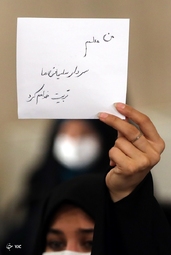 من معلم
سردار سلیمانی‌ها
تربیت خواهم کرد